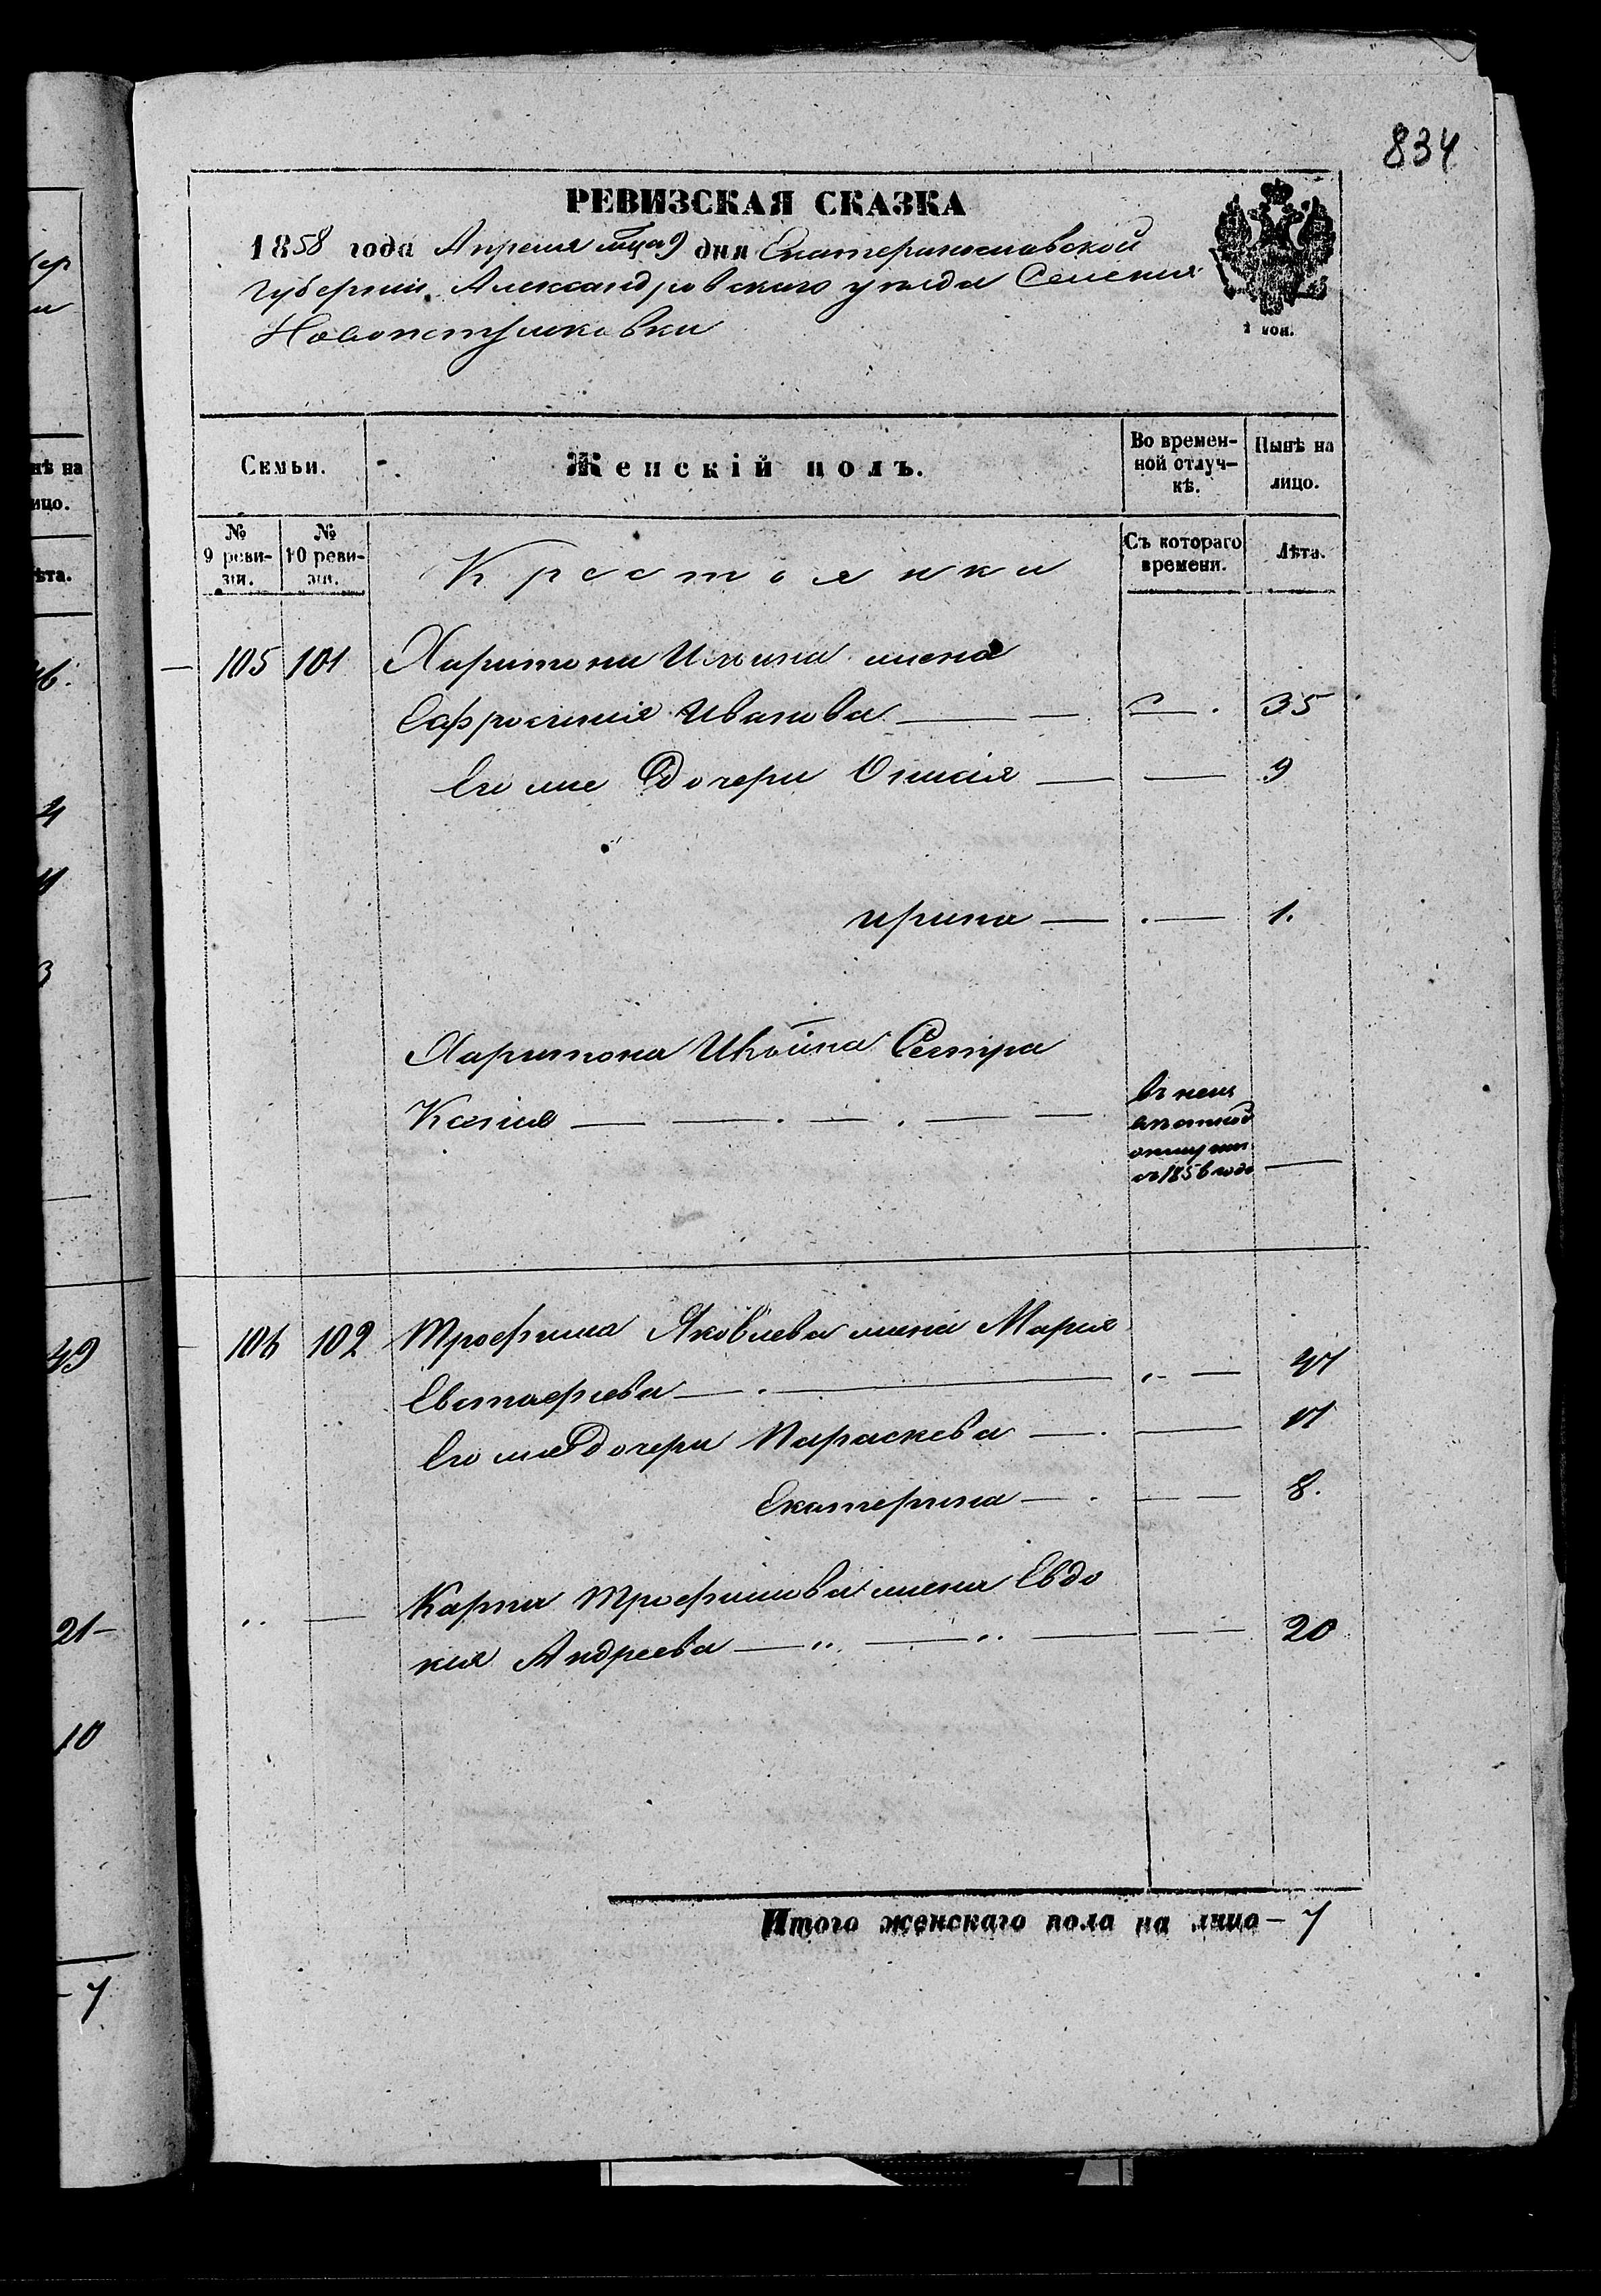 834
РЕВИЗСКАЯ СКАЗКА
1858 года Апреля мца 9 дня Екатеринославской
губернии Александровского уезда Селения
1 коп.
Семьи.
Женскій полъ.
Во времен-
ной отлуч-
кѣ.
Нынѣ на
лицо.
№
9 реви-
зіи.
№
10 реви-
зіи.
Съ котораго
времени.
Лѣта.
Крестьянки
105 101 Харитона Ильина жена
Ефросинія Иванова — — 35
Его же дочери — — 9
ирина — — 1.
Харитона Сестра
въ
съ 1856 года —
106 102 Трофима Яковлева жена Мария
Евстафиева — — 47
Его же дочери Параскева — — 17
Екатерина — — 8.
" — Карпа Трофимова жена Евдо
кия Андреева — " — " — — 20
Итого женскаго пола на лицо — 7
нѣ на
ицо.
ѣта.
49
21 —
10
- 7